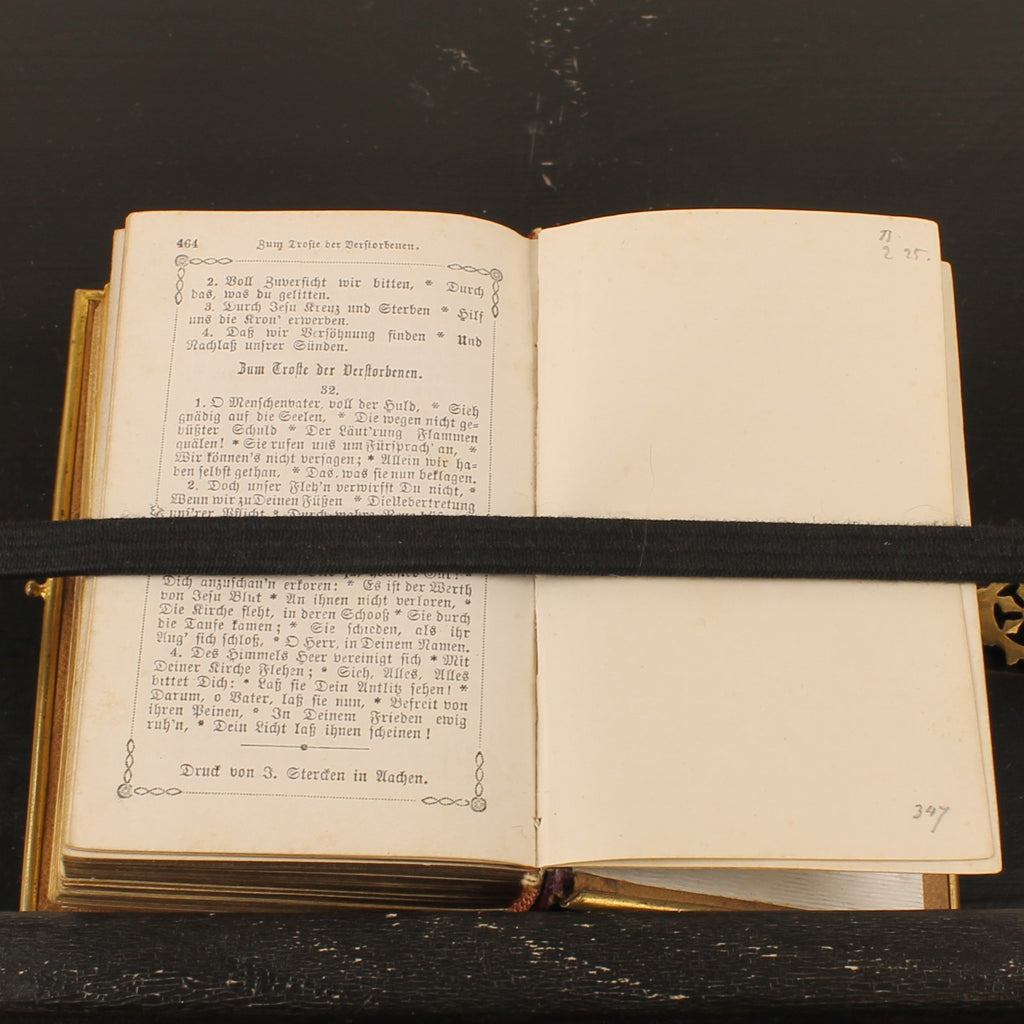 464 Zum Troste der Verstorbenen.
2. Voll Zuversicht wir bitten, * Durch
das, was du gelitten.
3. Durch Jesu Kreuz und Sterben * Hilf
uns die Kron' erwerben.
4. Daß wir Versöhnung finden * Und
Nachlaß unsrer Sünden.
Zum Troste der Verstorbenen.
32.
1. O Menschenvater, voll der Huld, * Sieh
gnädig auf die Seelen, * Die wegen nicht ge-
büßter Schuld * Der Läut'rung Flammen
quälen! * Sie rufen uns um Fürsprach' an, *
Wir können's nicht versagen; * Allein wir ha-
ben selbst gethan, * Das, was sie nun beklagen.
2. Doch unser Fleh'n verwirfst Du nicht, *
Wenn wir zu Deinen Füßen * Die Uebertretung
uns'rer Pflicht * Durch wahre
Dich anzuschau'n erkoren: * Es ist der Werth
von Jesu Blut * An ihnen nicht verloren, *
Die Kirche fleht, in deren Schooß * Sie durch
die Taufe kamen; * Sie schieden, als ihr
Aug' sich schloß, * O Herr, in Deinem Namen.
4. Des Himmels Heer vereinigt sich * Mit
Deiner Kirche Flehen; * Sieh, Alles, Alles
bittet Dich: * Laß sie Dein Antlitz sehen! *
Darum, o Vater, laß sie nun, * Befreit von
ihren Peinen, * In Deinem Frieden ewig
ruh'n, * Dein Licht laß ihnen scheinen!
Druck von J. Stercken in Aachen.
2 25.
347